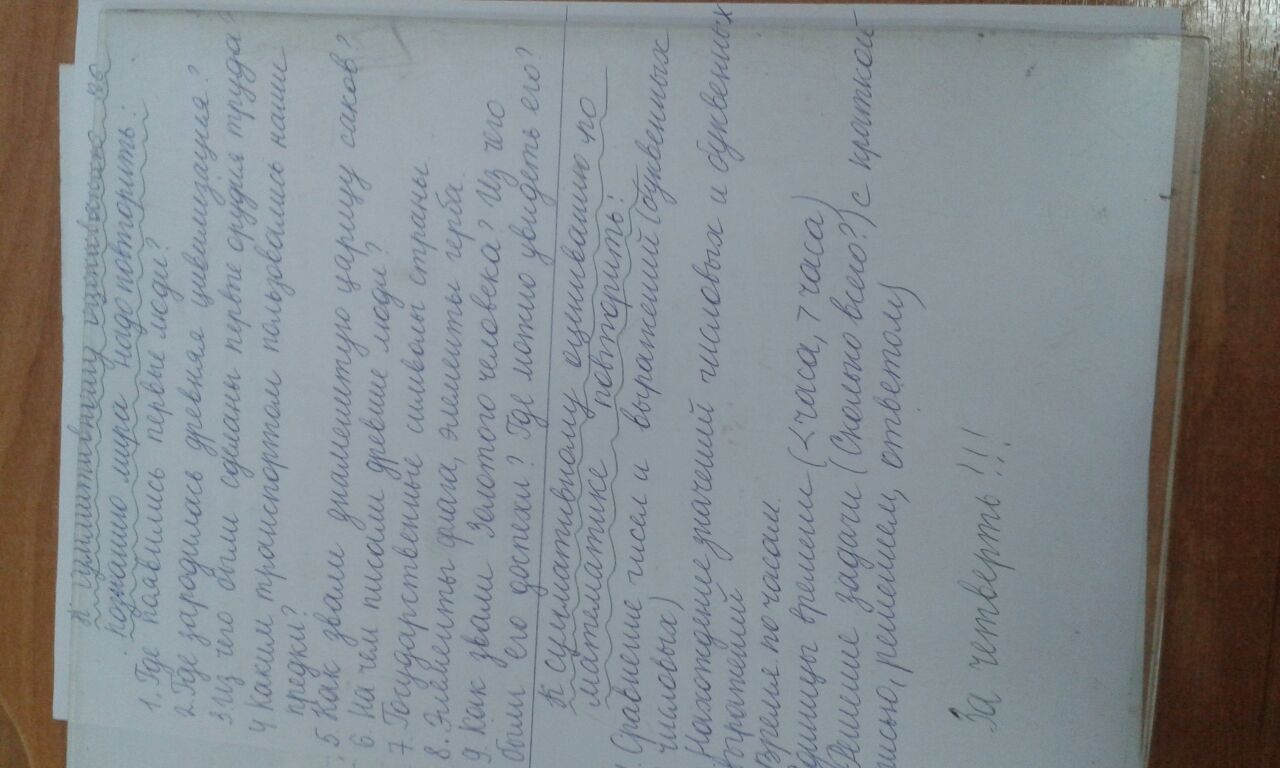 К суммативному оцениванию по
познанию мира надо повторить:
1. Где появились первые люди?
2. Где зародилась древняя цивилизация?
3. Из чего были сделаны первые орудия труда?
4 Каким транспортом пользовались наши
предки?
5. Как звали знаменитую царицу саков?
6. На чём писали древние люди?
7. Государственные символы страны
8. Элементы флага, элементы герба.
9. Как звали Золотого человека? Из чего
были его доспехи? Где можно увидеть его?
К суммативному оцениванию по
математике повторить:
Сравнение чисел и выражений (буквенных
числовых)
Нахождение значений числовых и буквенных
выражений
Время по часам.
единицы времени (< часа, > часа)
Решение задачи (Сколько всего?) с краткой
писью, решением, ответом)
За четверть!!!